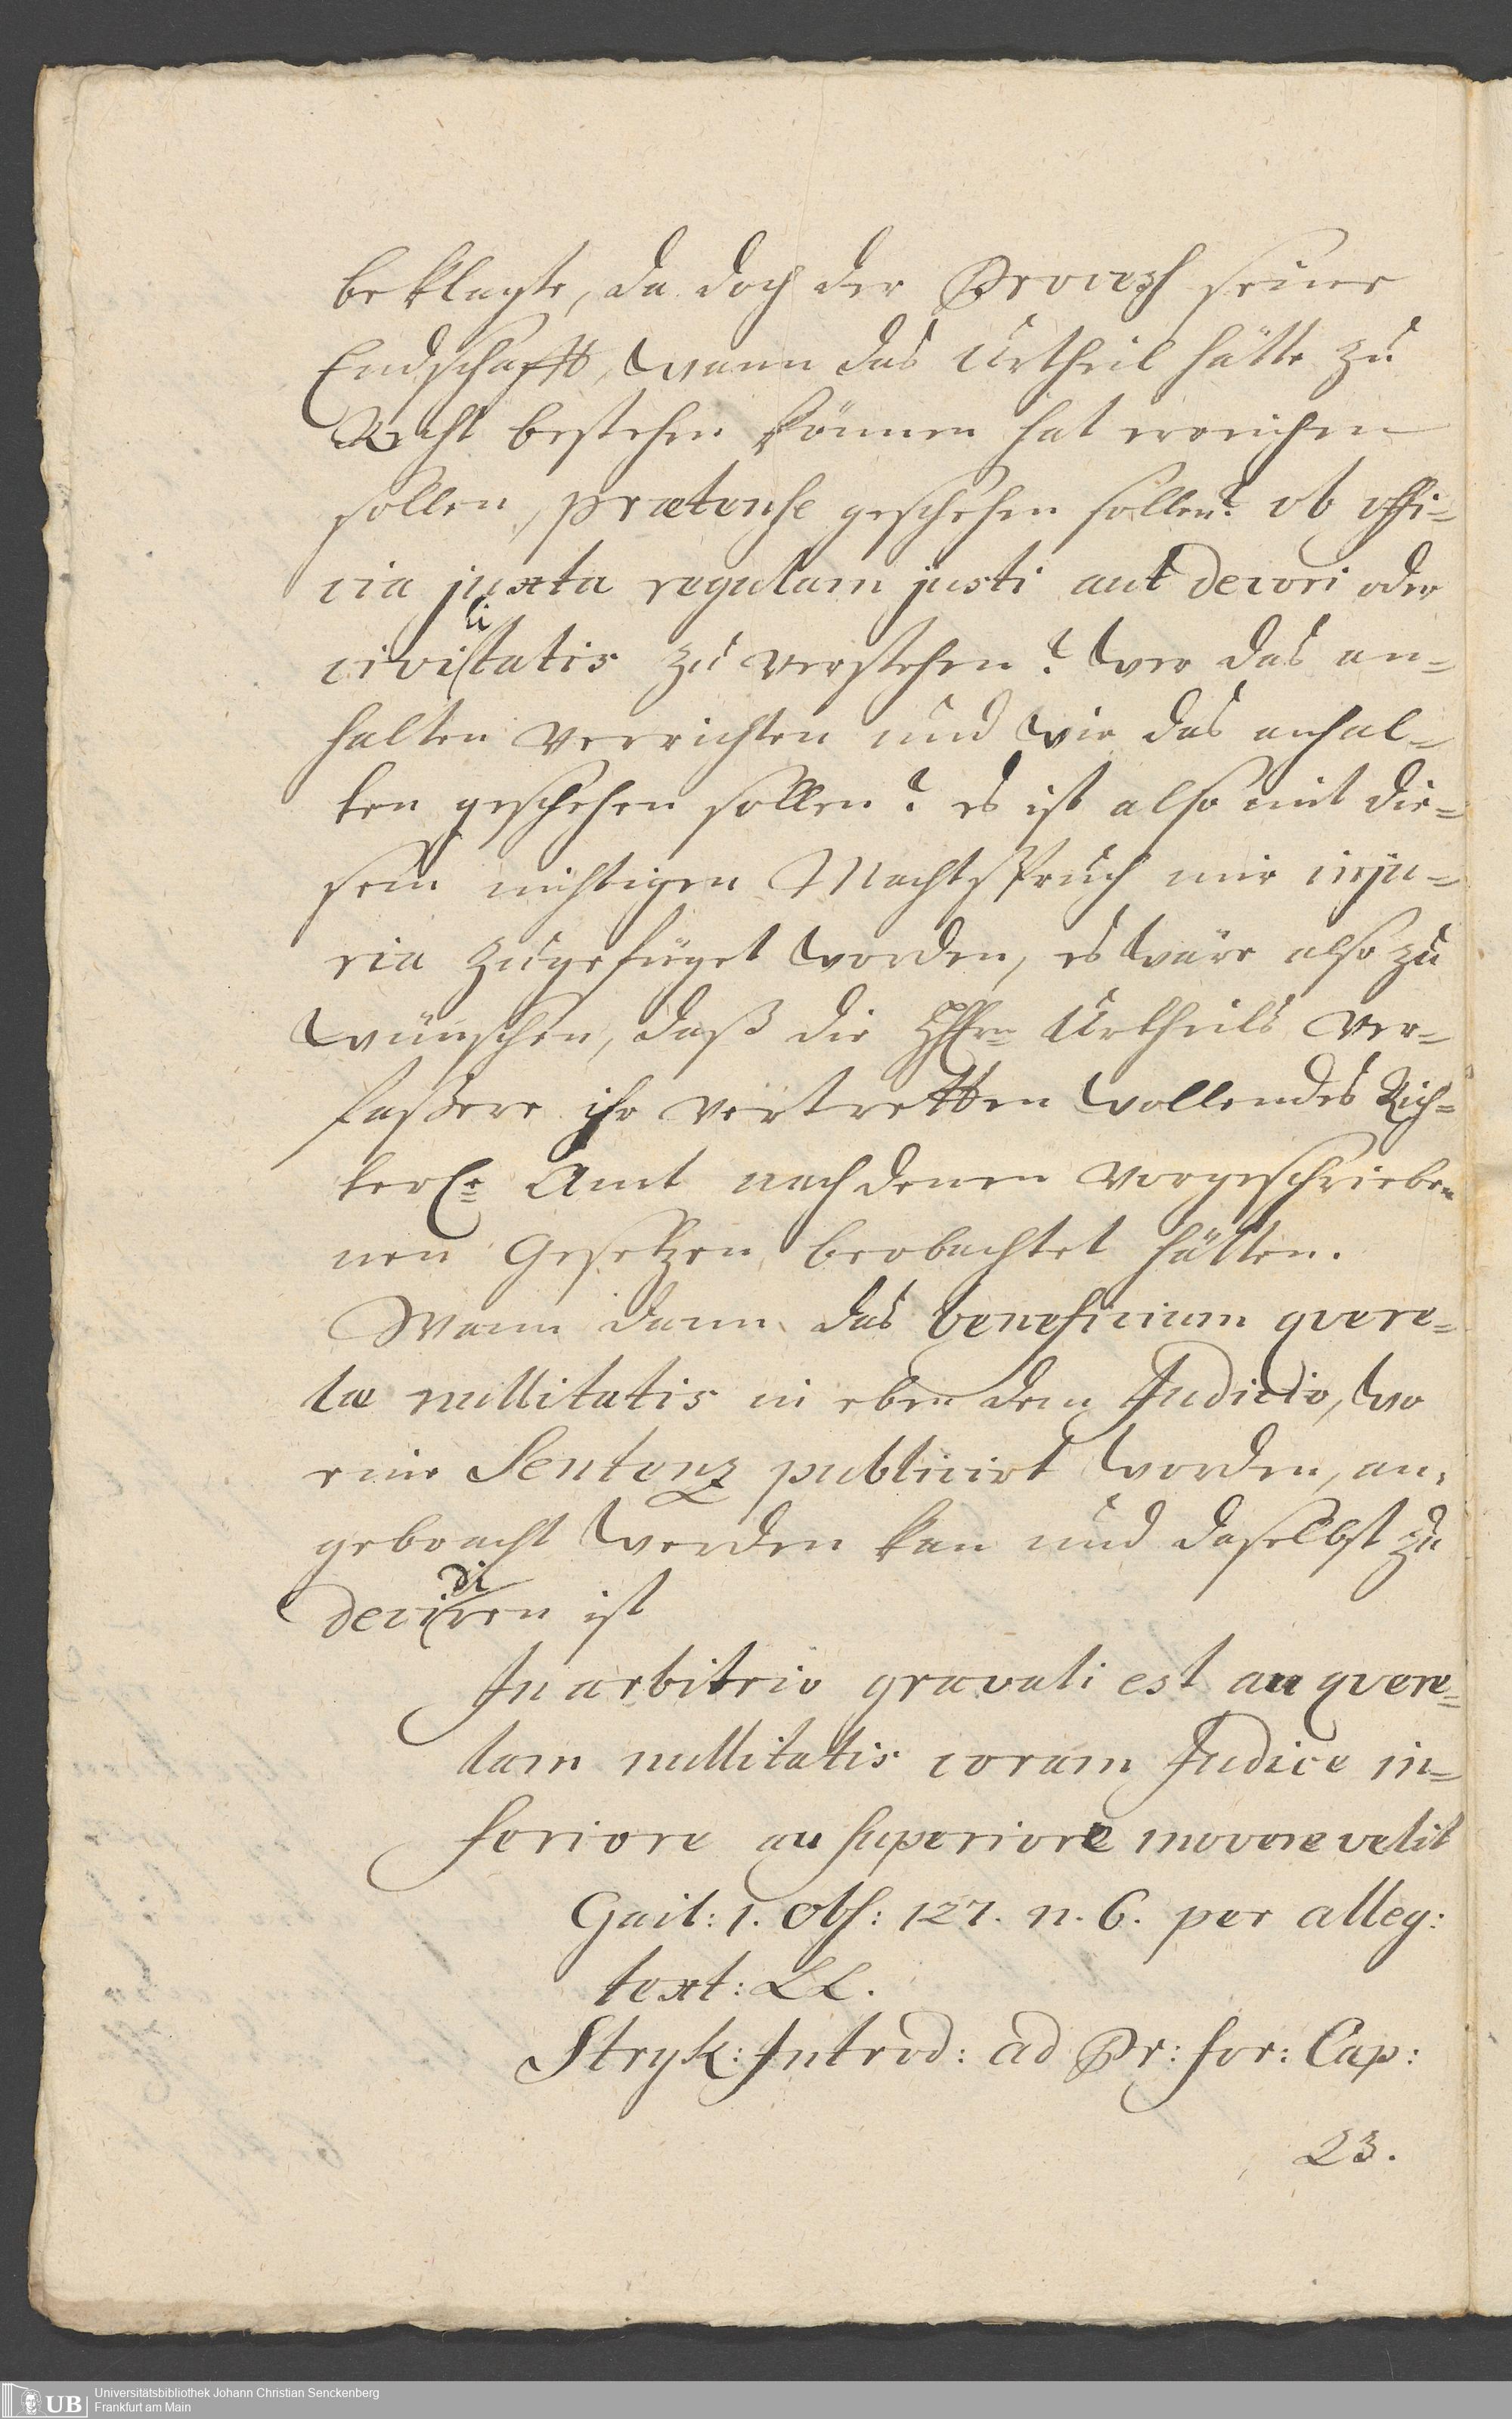 beklagte, da doch der Process seine
Endschafft, wann das Urtheil hätte zu
Recht bestehen können hat erreichen
sollen, prætense geschehen sollen? ob offi-
cia juxta regulam justi aut decori oder
civilitatis zu verstehen? wer das an-
halten verrichten und wie das anhal-
ten geschehen sollen? es ist also mit die-
sem nichtigen Machtspruch mir inju-
ria zugefüget worden, es wäre also zu
wünschen, daß die HHrn Urtheils Ver-
faßere ihr vertretten wollendes Rich-
terl. Amt nach denen vorgeschriebe-
nen Gesetzen beobachtet hätten.
Wann dann das beneficium quere-
læ nullitatis in eben dem Judicio, wo
eine Sentenz publicirt worden, an-
gebracht werden kan und daselbst zu
decidiren ist
In arbitrio gravati est an quere-
lam nullitatis coram Judice in-
feriore an superiore movere velit
Gail: 1. Obs: 127. n. 6. per alleg:
text: LL.
Stryk: Introd: ad Pr: for: Cap:
23.
UB Universitätsbibliothek Johann Christian Senckenberg
Frankfurt am Main